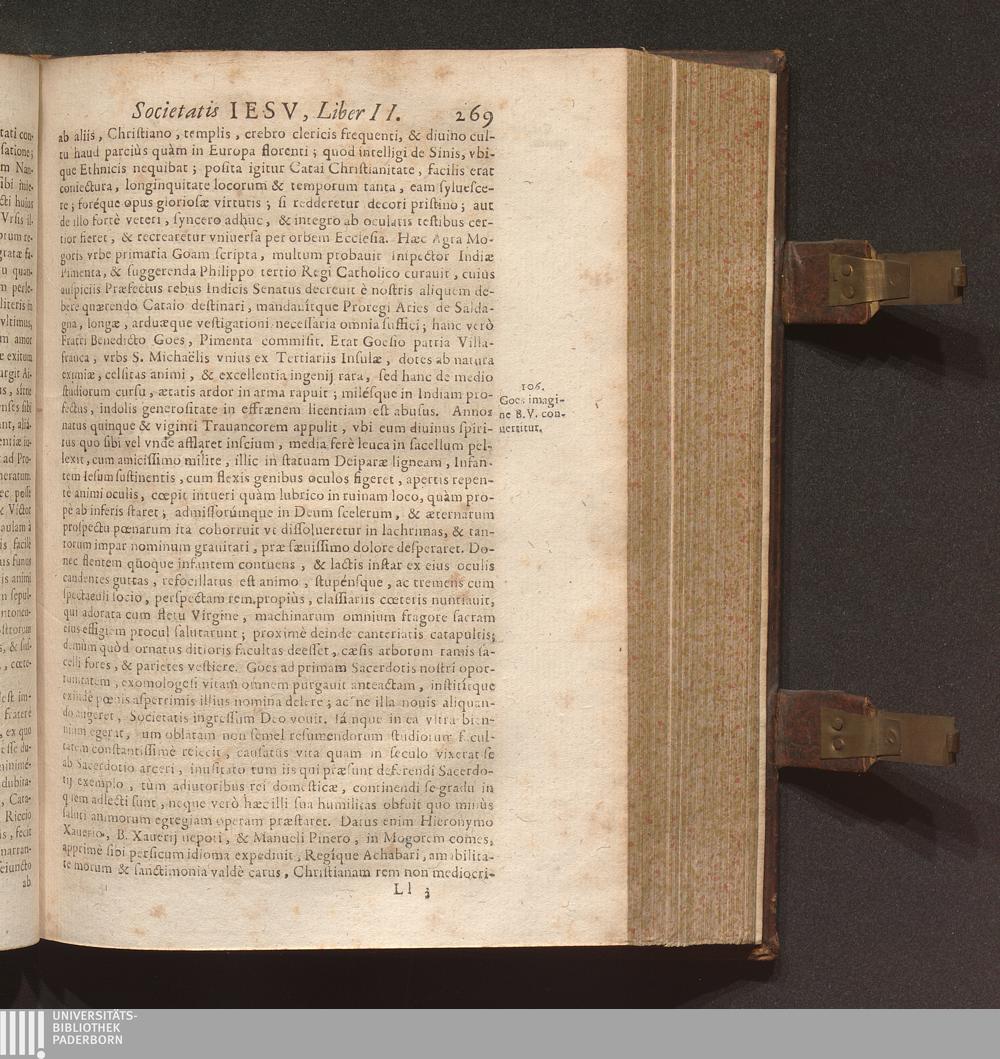 Societatis IESV, Liber II. 269
ab aliis, Christiano, templis, crebro clericis frequenti, & diuino cul-
tu haud parciùs quàm in Europa florenti; quod intelligi de Sinis, vbi-
que Ethnicis nequibat; posita igitur Catai Christianitate, facilis erat
coniectura, longinquitate locorum & temporum tanta, eam syluesce-
re; foréque opus gloriosæ virtutis; si redderetur decori pristino; aut
de illo fortè veteri, syncero adhuc, & integro ab oculatis testibus cer-
tior fieret, & recrearetur vniuersa per orbem Ecclesia. Hæc Agra Mo-
goris vrbe primaria Goam scripta, multum probauit Inspector Indiæ
Pimenta, & suggerenda Philippo tertio Regi Catholico curauit, cuius
auspiciis Præfectus rebus Indicis Senatus decreuit è nostris aliquem de-
bere quærendo Cataio destinari, mandauítque Proregi Aries de Salda-
gna, longæ, arduæque vestigationi necessaria omnia suffici; hanc verò
Fratri Benedicto Goes, Pimenta commisit. Erat Goesio patria Villa-
franca, vrbs S. Michaëlis vnius ex Tertiariis Insulæ, dotes ab natura
eximiæ, celsitas animi, & excellentia ingenij rara, sed hanc de medio
studiorum cursu, ætatis ardor in arma rapuit; milésque in Indiam pro-
fectus, indolis generositate in effrænem licentiam est abusus. Annos
natus quinque & viginti Trauancorem appulit, vbi eum diuinus spiri-
tus quo sibi vel vnde afflaret inscium, media ferè leuca in sacellum pel-
lexit, cum amicissimo milite, illic in statuam Deiparæ ligneam, Infan-
tem Iesum sustinentis, cum flexis genibus oculos figeret, apertis repen-
te animi oculis, cœpit intueri quàm lubrico in ruinam loco, quàm pro-
pè ab inferis staret; admissorúmque in Deum scelerum, & æternarum
prospectu pœnarum ita cohorruit vt dissolueretur in lachrimas, & tan-
torum impar nominum grauitati, præ sæuissimo dolore desperaret. Do-
nec flentem quoque infantem contuens, & lactis instar ex eius oculis
candentes guttas, refocillatus est animo, stupénsque, ac tremens cum
spectaculi socio, perspectam rem propiùs, classiariis cœteris nuntiauit,
qui adorata cum fletu Virgine, machinarum omnium fragore sacram
eius effigiem procul salutarunt; proximè deinde canteriatis catapultis;
demum quòd ornatus ditioris facultas deesset, cæsis arborum ramis sa-
celli fores, & parietes vestiere. Goes ad primam Sacerdotis nostri opor-
tunitatem, exomologesi vitam omnem purgauit anteactam, instititque
exindè pœnis asperrimis illius nomina delere; ac ne illa nouis aliquan-
do augeret, Societatis ingressum Deo vouit. Iámque in ea vltra bien-
nium egerat, cum oblatam non semel resumendorum studiorum facul-
tatem constantissimè reiecit, causatus vita quam in seculo vixerat se
ab Sacerdotio arceri, inusitato tum iis qui præsunt deferendi Sacerdo-
tij exemplo, tùm adiutoribus rei domesticæ, continendi se gradu in
quem adlecti sunt, neque verò hæc illi sua humilitas obfuit quo minùs
saluti animorum egregiam operam præstaret. Datus enim Hieronymo
Xauerio, B. Xauerij nepoti, & Manueli Pinero, in Mogorem comes,
apprimè sibi persicum idioma expediuit, Regíque Achabari, amabilita-
te morum & sanctimonia valdè carus, Christianam rem non mediocri-
Ll 3
106.
Goes imagi-
ne B. V. con-
uertitur.
UNIVERSITÄTS-
BIBLIOTHEK
PADERBORN